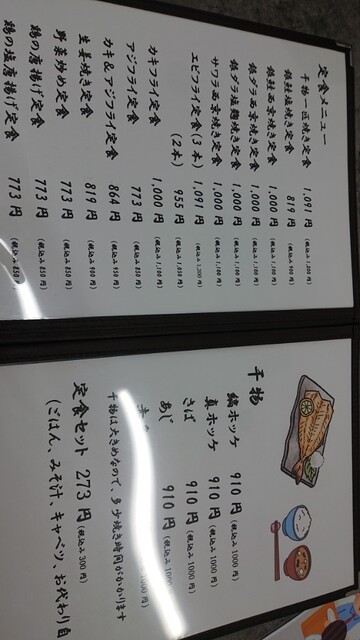 定食メニュー
干物一匹焼き定食 1,091円(税込み1,200円)
銀鮭塩焼き定食 819円(税込み900円)
銀鮭西京焼き定食 1,000円(税込み1,100円)
銀ダラ西京焼き定食 1,000円(税込み1,100円)
銀ダラ塩麹焼き定食 1,000円(税込み1,100円)
サワラ西京焼き定食 1,000円(税込み1,100円)
エビフライ定食(3本) 1,091円(税込み1,200円)
(2本) 955円(税込み1,050円)
カキフライ定食 1,000円(税込み1,100円)
アジフライ定食 773円(税込み850円)
カキ&アジフライ定食 864円(税込み950円)
生姜焼き定食 819円(税込み900円)
野菜炒め定食 773円(税込み850円)
鶏の唐揚げ定食 773円(税込み850円)
鶏の塩唐揚げ定食 773円(税込み850
干物
縞ホッケ 910円(税込み1000円)
真ホッケ 910円(税込み1000円)
さば 910円(税込み1000円)
あじ 910円(税込み1000
1000円)
干物は大きめなので、多少焼き時間がかかります
定食セット 273円(税込み300円)
(ごはん、みそ汁、キャベツ、お代わり自